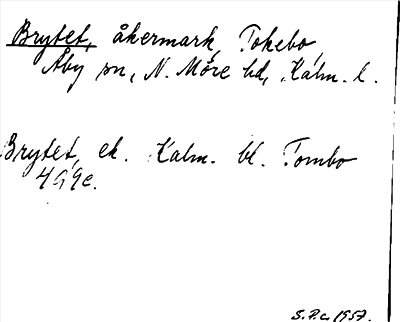 Brytet, åkermark, Tokebo,
Åby sn, N. Möre hd, Kalm. l.
Brytet, ek. Kalm. bl. Tombo
4G9e.
S.P.c. 1957.